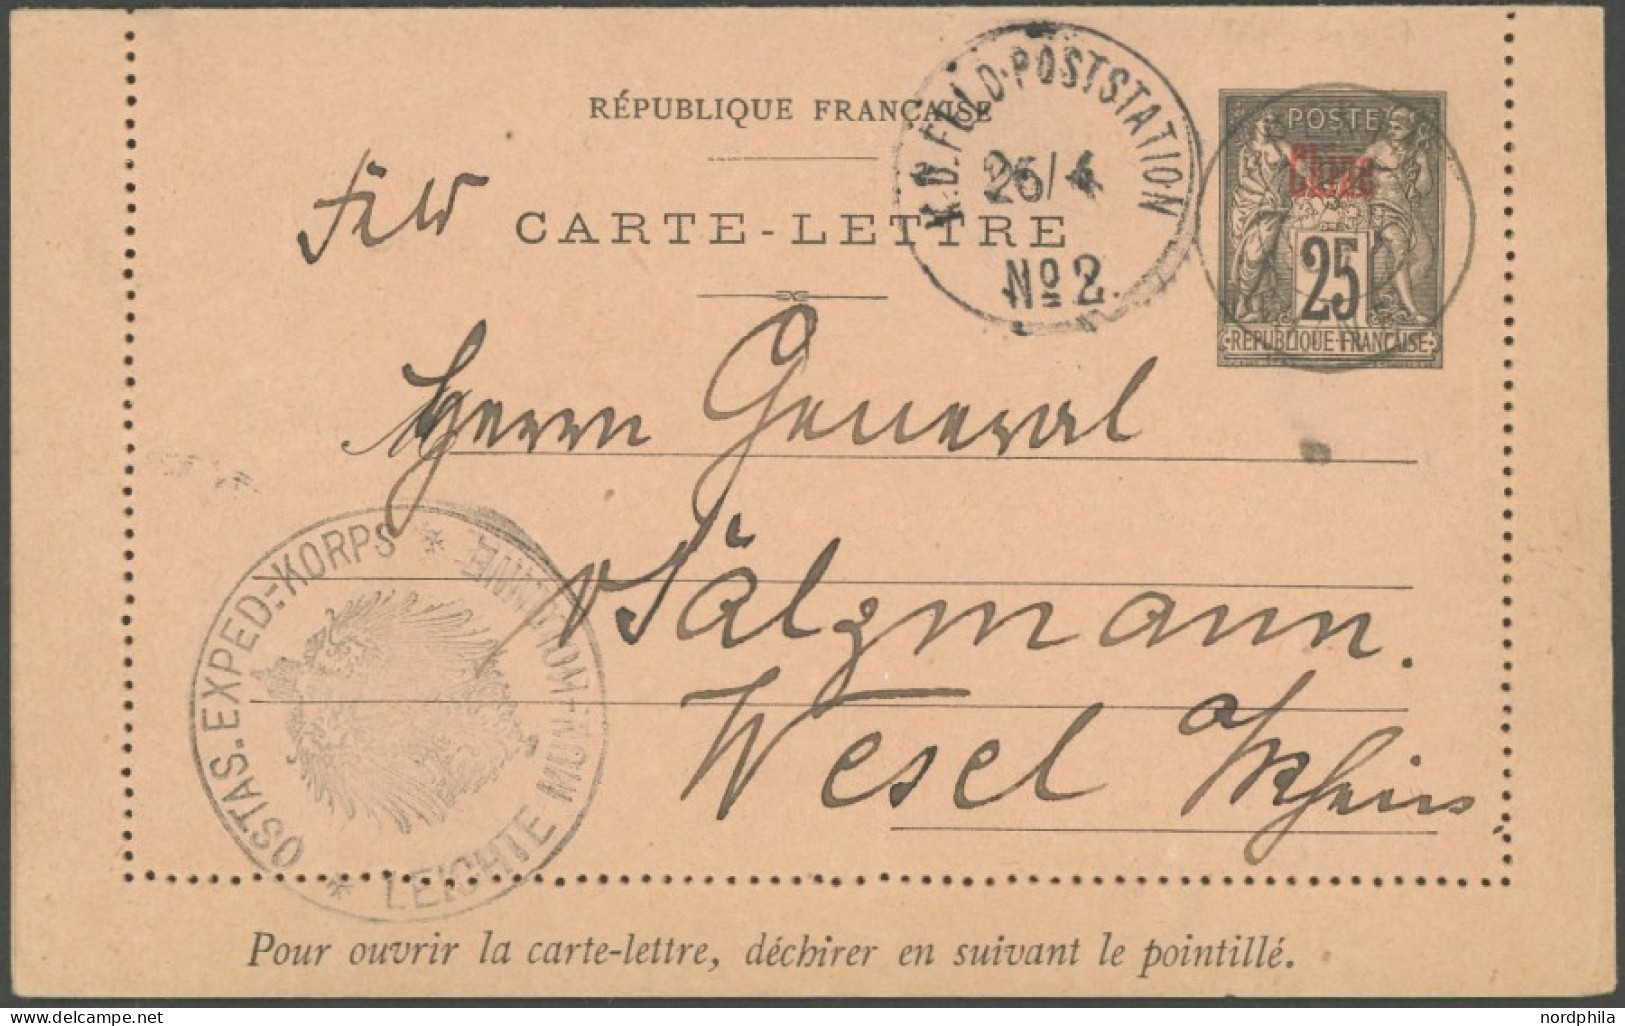 RÉPUBLIQUE FRANÇAISE
K.D. FELD-POSTSTATION
25/4
No 2.
POSTE
Chine
25
RÉPUBLIQUE FRANÇAISE
Feld
CARTE-LETTRE
Herrn General
Sälzmann.
Wesel a/Rhein
OSTAS. EXPED.-KORPS * LEICHTE MUNITION *
Pour ouvrir la carte-lettre, déchirer en suivant le pointillé.
nordphila.com
nordphila.com